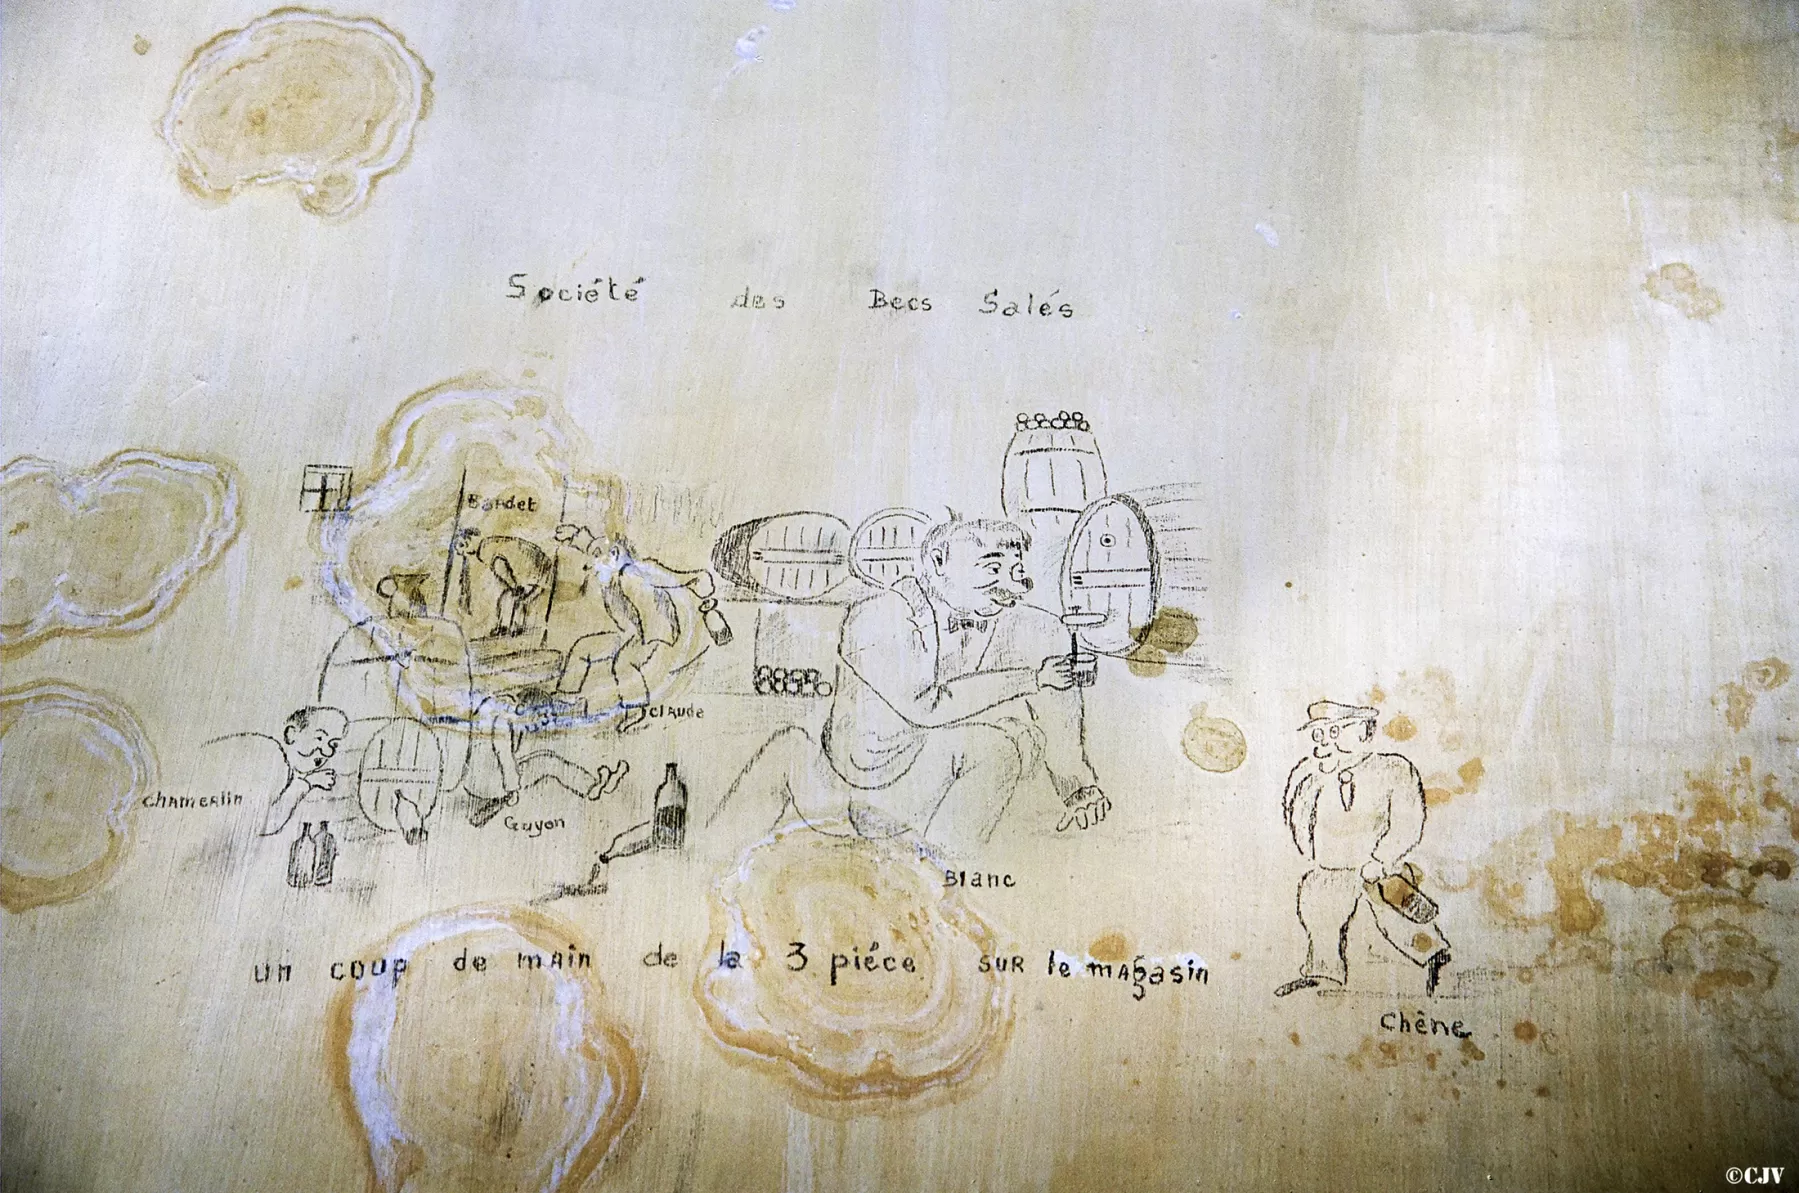 Société des Becs Salés
Bardet
claude
chamerlin
Guyon
Blanc
un coup de main de la 3 piéce sur le magasin
Chêne
©CJV